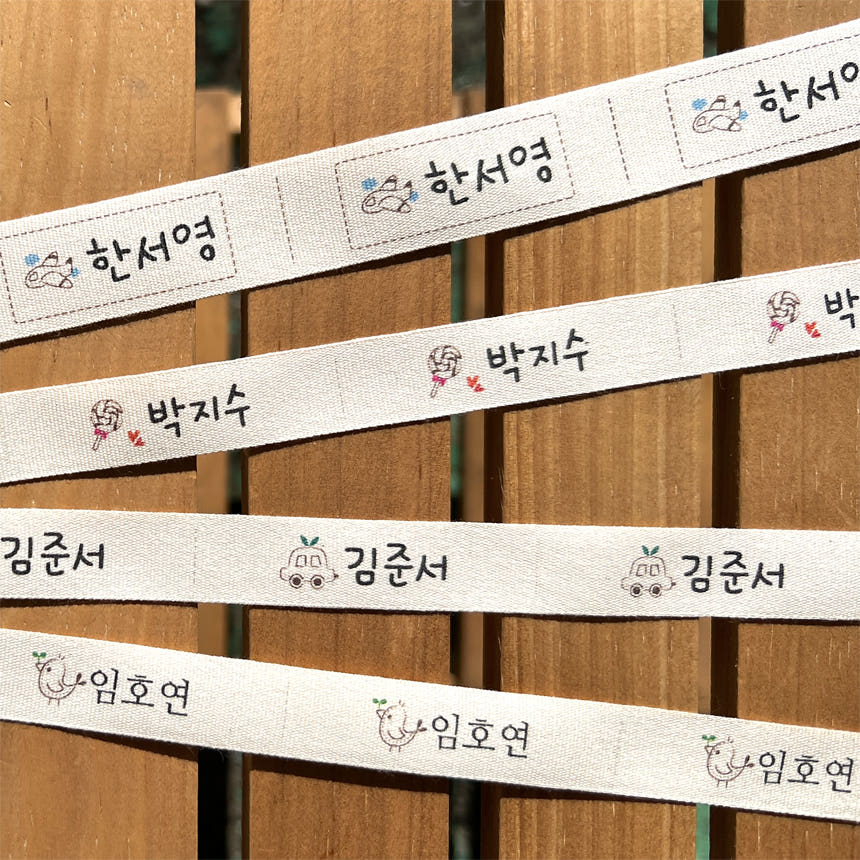 한서영 한서영 한서영
박지수 박지수 박
김준서 김준서 김준서
임호연 임호연 임호연